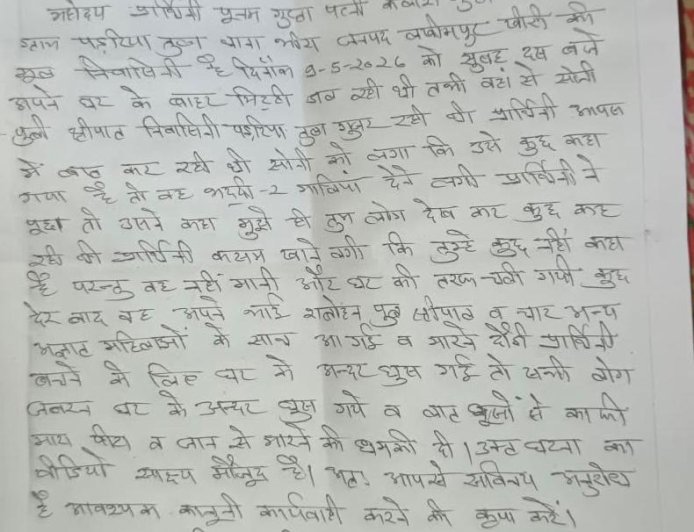 महोदय प्रार्थिनी पूनम गुप्ता पत्नी
ग्राम पड़रिया तुला थाना भीरा जनपद लखीमपुर खीरी की
मूल निवासिनी है दिनाँक 9-5-2026 को सुबह दस बजे
अपने घर के बाहर मिट्टी डाल रही थी तभी वहां से सोनी
पुत्री श्रीपाल निवासिनी पड़रिया तुला गुजर रही थी प्रार्थिनी आपस
में बात कर रही थी सोनी को लगा कि उसे कुछ कहा
गया है तो वह भद्दी-2 गालियां देने लगी प्रार्थिनी ने
पूछा तो उसने कहा मुझे ही तुम लोग देख कर कुछ कह
रही थी प्रार्थिनी कसम खाने लगी कि तुम्हे कुछ नहीं कहा
है परन्तु वह नहीं मानी और घर की तरफ चली गयी कुछ
देर बाद वह अपने भाई पुत्र श्रीपाल व चार अन्य
अज्ञात महिलाओं के साथ आ गई व मारने दौड़ी प्रार्थिनी
बचने के लिए घर के अन्दर घुस गई तो सभी लोग
जबरन घर के अन्दर घुस गये व लात घूसों से काफी
मारा पीटा व जान से मारने की धमकी दी। उक्त घटना का
वीडियो साक्ष्य मौजूद है। अतः आपसे सविनय अनुरोध
है आवश्यक कानूनी कार्यवाही करने की कृपा करें।